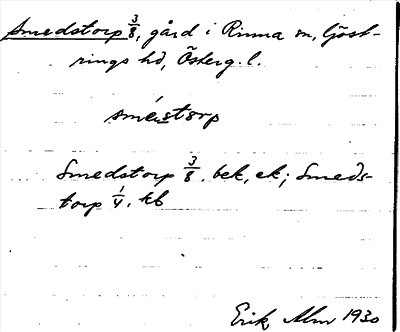 Smedstorp 3/8, gård i Rinna sn, Göst-
rings hd, Österg. l.
sméstorp
Smedstorp 3/8. bek, ek; Smeds-
torp 1/4. kb
Erik Alm 1930